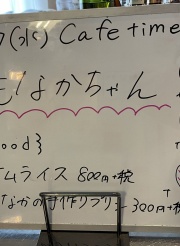 (水) Cafe time
!なかちゃん
ood}
ムライス 800円+税
なかの手作りプリン 300円+税